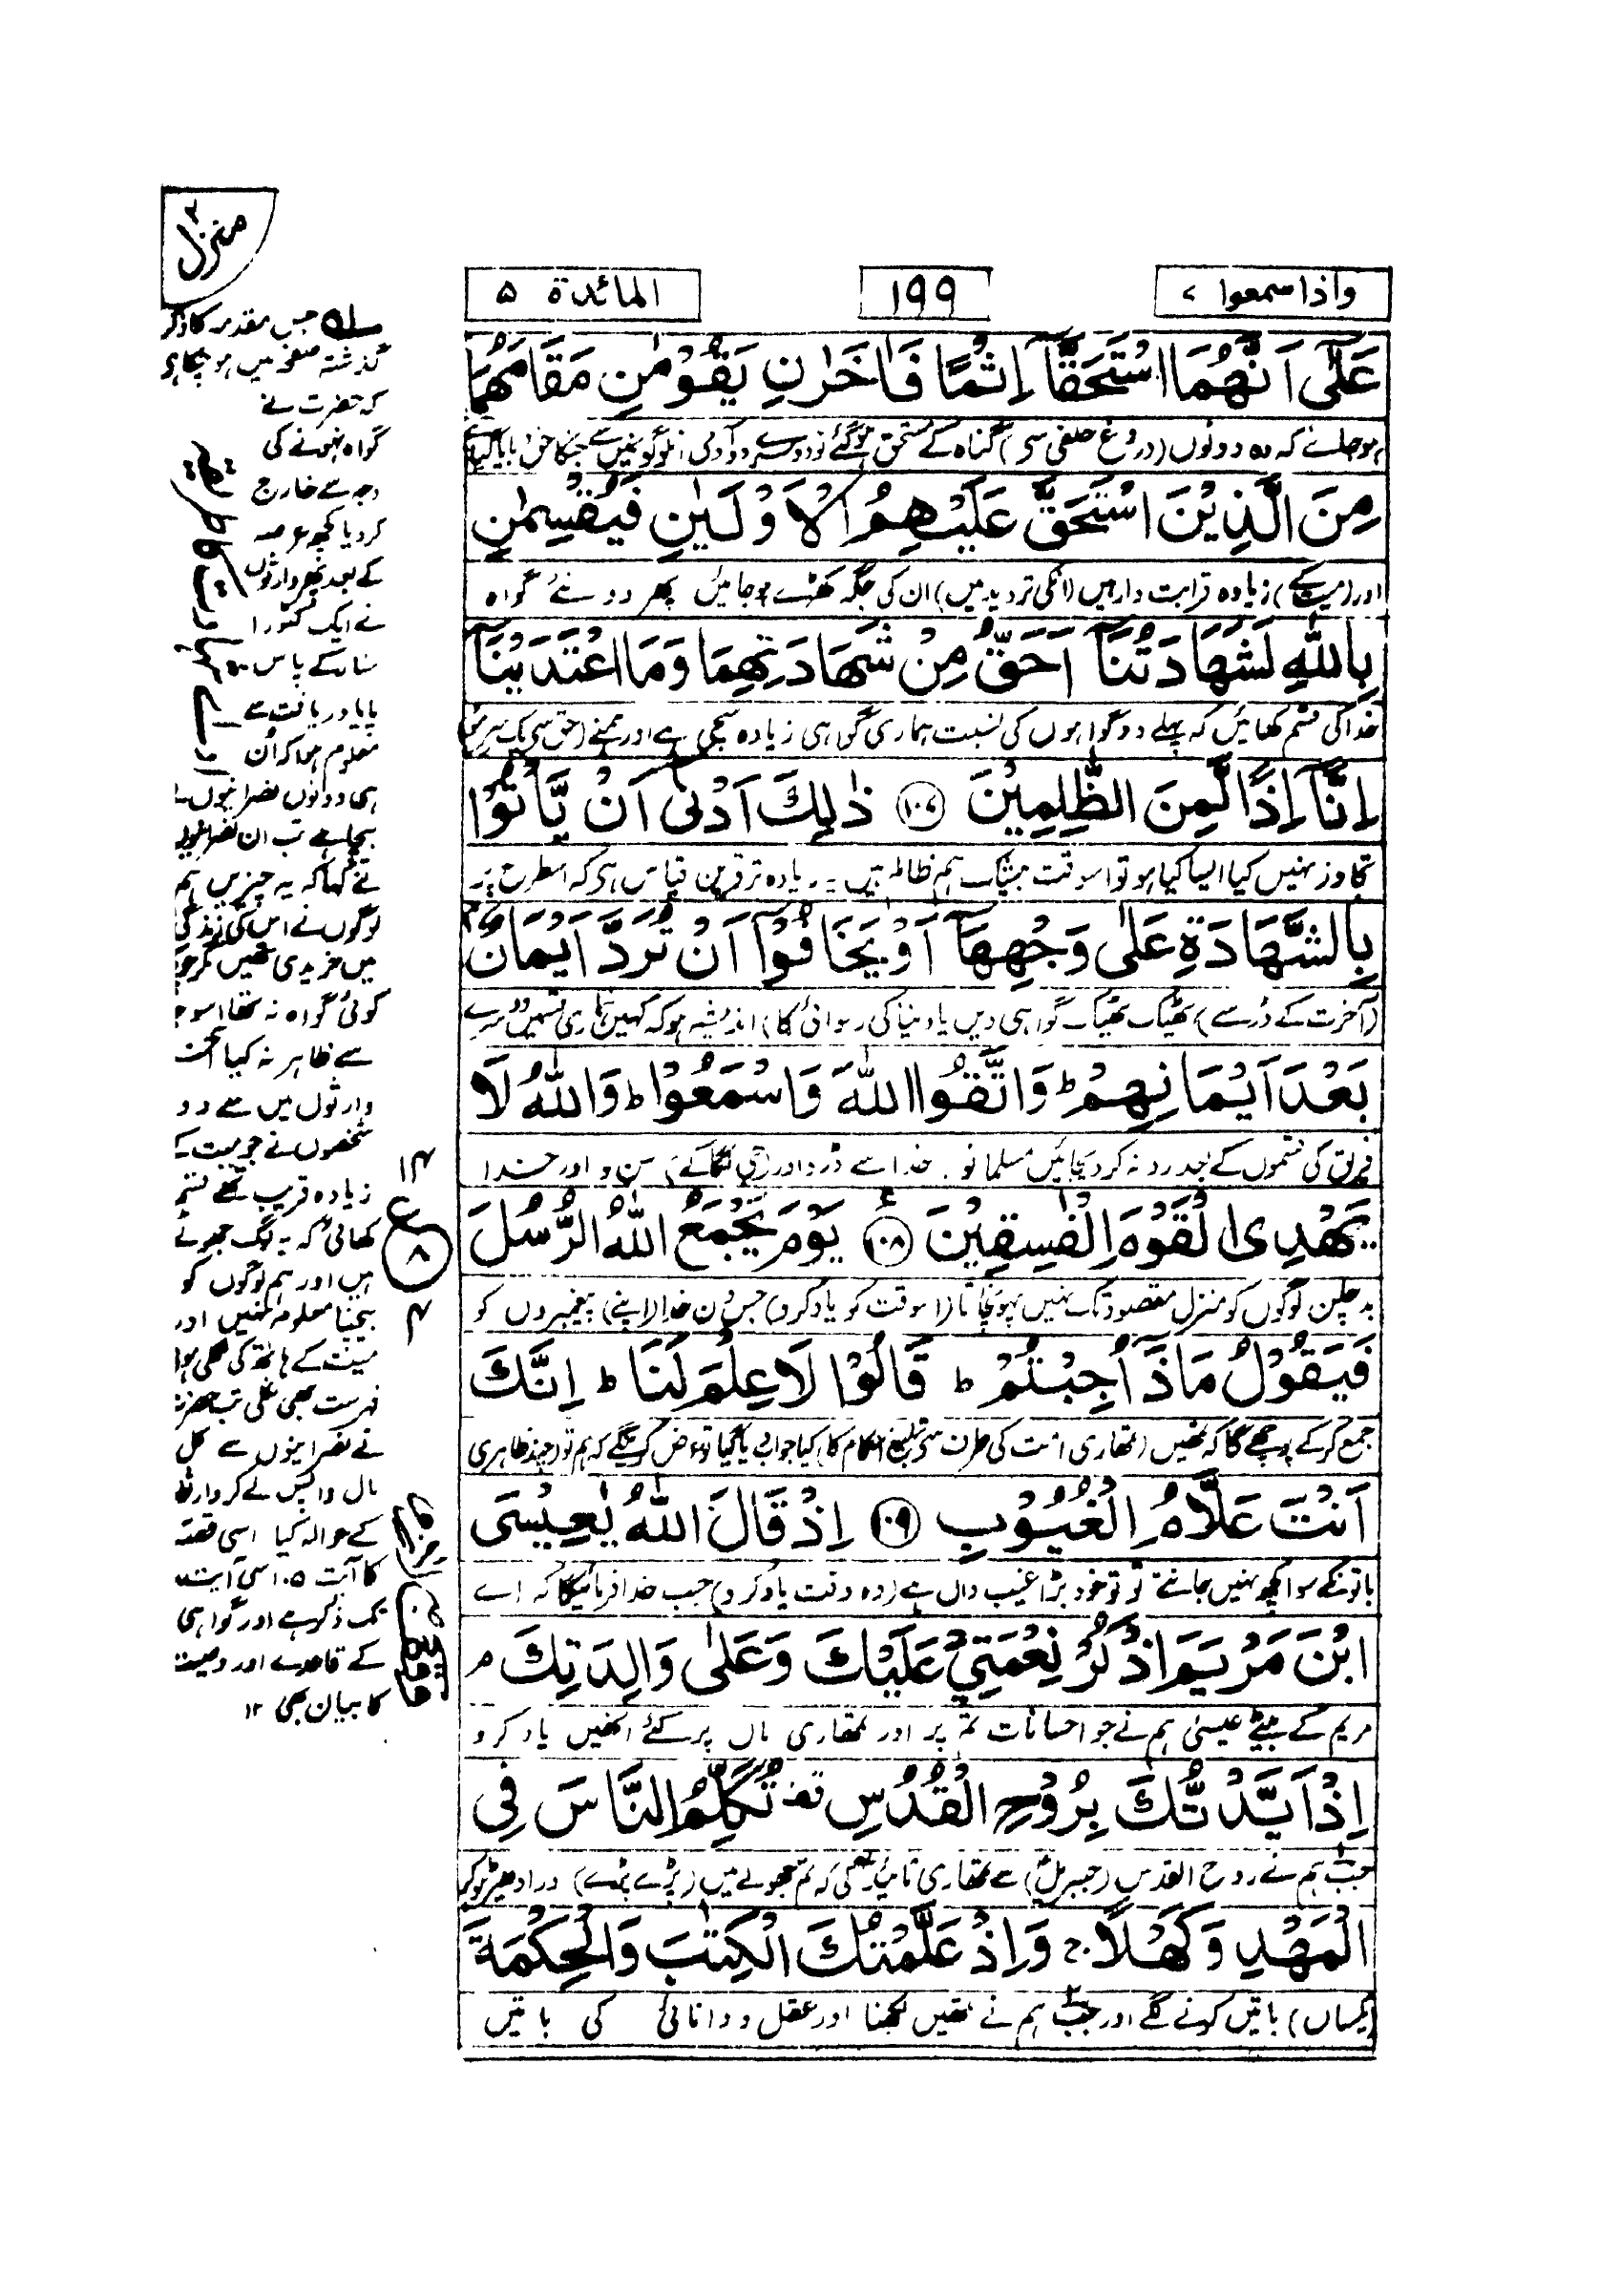 واذا سمعوا ٧
١٩٩
المائدة ۵
منزل ٢
عَلٰٓی اَنَّهُمَا اسْتَحَقَّاۤ اِثْمًا فَاٰخَرٰنِ یَقُوْمٰنِ مَقَامَهُمَا
ہوجائے کہ وہ دونوں (دروغ حلفی سے) گناہ کے مستحق ہوگئے تو دوسرے دو آدمی
مِنَ الَّذِیْنَ اسْتَحَقَّ عَلَیْهِمُ الْاَوْلَیٰنِ فَیُقْسِمٰنِ
اور (میت کے) زیادہ قرابت دار ہیں (انکی تردید میں) ان کی جگہ کھڑے ہوجائیں پھر دو نئے گواہ
بِاللّٰهِ لَشَهَادَتُنَاۤ اَحَقُّ مِنْ شَهَادَتِهِمَا وَمَا اعْتَدَیْنَاۤ
خدا کی قسم کھائیں کہ پہلے دو گواہوں کی نسبت ہماری گواہی زیادہ سچی ہے اور ہمنے
اِنَّاۤ اِذًا لَّمِنَ الظّٰلِمِیْنَ ١٠٧ ذٰلِكَ اَدْنٰۤی اَنْ یَّاْتُوْا
تجاوز نہیں کیا ایسا کیا ہو تو اسوقت بیشک ہم ظالم ہیں یہ زیادہ تر قرین قیاس ہے کہ اسطرح یہ
بِالشَّهَادَةِ عَلٰی وَجْهِهَاۤ اَوْ یَخَافُوْۤا اَنْ تُرَدَّ اَیْمَانٌ
(آخرت کے ڈر سے) ٹھیک ٹھیک گواہی دیں یا دنیا کی رسوائی کا) اندیشہ ہو کہ کہیں ہماری قسمیں دوسرے
بَعْدَ اَیْمَانِهِمْ ط وَاتَّقُوا اللّٰهَ وَاسْمَعُوْا ط وَاللّٰهُ لَا
فریق کی قسموں کے بعد رد نہ کردیجائیں مسلمانو۔ خدا سے ڈرو اور (جی لگاکے) سنو اور خدا
یَهْدِی الْقَوْمَ الْفٰسِقِیْنَ ١٠٨ یَوْمَ یَجْمَعُ اللّٰهُ الرُّسُلَ
بدچلن لوگوں کو منزل مقصود تک نہیں پہونچاتا (اسوقت کو یاد کرو) جس دن خدا (اپنے) پیغمبروں کو
فَیَقُوْلُ مَاذَاۤ اُجِبْتُمْ ط قَالُوْا لَا عِلْمَ لَنَا ط اِنَّكَ
جمع کرکے پوچھے گا کہ تمھیں (تمھاری امت کی طرف سے تبلیغ احکام کا) کیا جواب دیا گیا تو عرض کرینگے کہ ہم تو (چند ظاہری
اَنْتَ عَلَّامُ الْغُیُوْبِ ١٠٩ اِذْ قَالَ اللّٰهُ یٰعِیْسَی
باتوں کے سوا کچھ نہیں جانتے تو تو خود بڑا غیب داں ہے (وہ وقت یاد کرو) جب خدا فرمائیگا کہ اے
ابْنَ مَرْیَمَ اذْكُرْ نِعْمَتِیْ عَلَیْكَ وَعَلٰی وَالِدَتِكَ م
مریم کے بیٹے عیسیٰ ہم نے جو احسانات تم پر اور تمھاری ماں پر کئے انھیں یاد کرو
اِذْ اَیَّدْتُّكَ بِرُوْحِ الْقُدُسِ قف تُكَلِّمُ النَّاسَ فِی
جب ہم نے روح القدس (جبرئیل) سے تمھاری تائید کی کہ تم جھولے میں (پڑے پڑے) اور ادھیڑ ہوکر
الْمَهْدِ وَكَهْلًا ج وَاِذْ عَلَّمْتُكَ الْكِتٰبَ وَالْحِكْمَةَ
(یکساں) باتیں کرنے لگے اور جب ہم نے تمھیں لکھنا اور عقل و دانائی کی باتیں
جس مقدمہ کا ذکر
گذشتہ صفحہ میں ہوچکا ہے
کہ حضرت نے
گواہ نہونے کی
وجہ سے خارج
کردیا کچھ عرصہ
کے بعد پھر وارثوں
نے ایک کٹورا
سنار کے پاس
پایا دریافت سے
معلوم ہوا کہ اُن
ہی دونوں نصرانیوں نے
بیچا ہے تب ان نصرانیوں
نے کہا کہ یہ چیزیں ہم
لوگوں نے اس کی زندگی
میں خریدی تھیں مگر چونکہ
کوئی گواہ نہ تھا اسوجہ
سے ظاہر نہ کیا
وارثوں میں سے دو
شخصوں نے جو میت کے
زیادہ قریب تھے قسم
کھائی کہ یہ لوگ جھوٹے
ہیں اور ہم لوگوں کو
بیچنا معلوم نہیں اور
میت کے ہاتھ کی لکھی ہوئی
فہرست بھی نکلی تب حضرت
نے نصرانیوں سے کل
مال واپس لے کر وارثوں
کے حوالہ کیا اسی قصہ
کا آیت ۱۰۵ سے آیت
تک ذکر ہے اور گواہی
کے قاعدے اور وصیت
کا بیان بھی ۱۲
١٤
ع
٨
٤